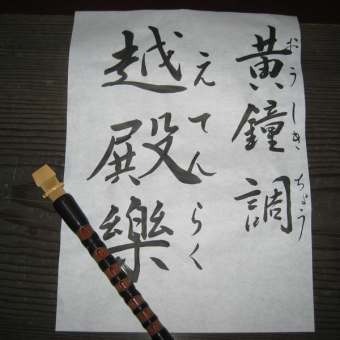 黄鐘調
おうしきちょう
越殿樂
えてんらく